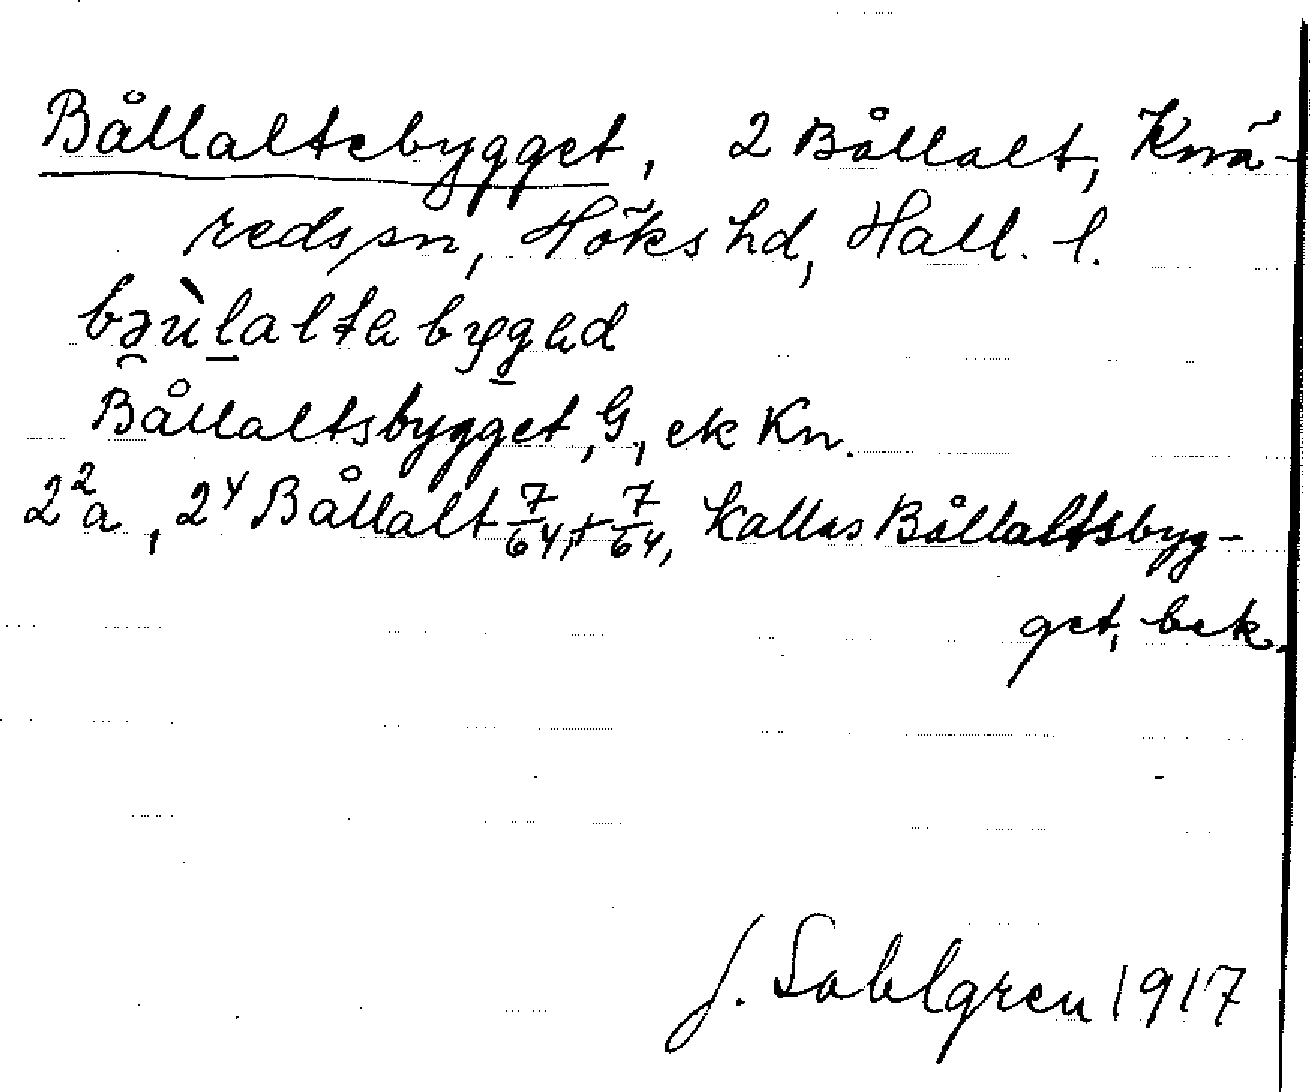 Bållaltebygget, 2 Bållalt, Knä-
redssn, Höks hd, Hall. l.
bəùlaltabygəd
Bållaltsbygget, G, ek Kn.
2²a, 2⁴ Bållalt 7/64, + 7/64, kallas Bållaltsbyg-
get, bek.
J. Sahlgren 1917